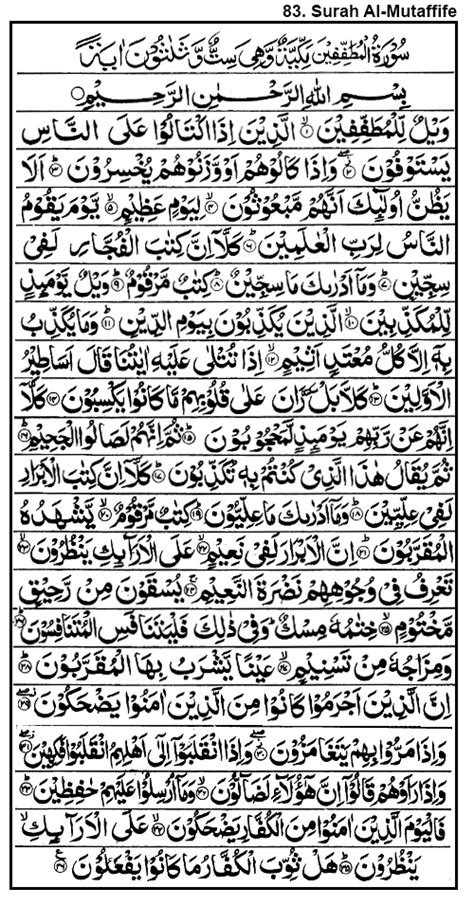 83. Surah Al-Mutaffife
سُوْرَةُ الْمُطَفِّفِيْنَ مَكِّيَّةٌ وَّهِيَ سِتٌّ وَّثَلٰثُوْنَ اٰيَةً
بِسْمِ اللهِ الرَّحْمٰنِ الرَّحِيْمِ
وَيْلٌ لِّلْمُطَفِّفِيْنَ ۙ﴿۱﴾ الَّذِيْنَ اِذَا اكْتَالُوْا عَلَى النَّاسِ
يَسْتَوْفُوْنَ ﴿۲﴾ وَاِذَا كَالُوْهُمْ اَوْ وَّزَنُوْهُمْ يُخْسِرُوْنَ ﴿۳﴾ اَلَا
يَظُنُّ اُولٰٓئِكَ اَنَّهُمْ مَّبْعُوْثُوْنَ ﴿۴﴾ لِيَوْمٍ عَظِيْمٍ ﴿۵﴾ يَّوْمَ يَقُوْمُ
النَّاسُ لِرَبِّ الْعٰلَمِيْنَ ﴿۶﴾ كَلَّآ اِنَّ كِتٰبَ الْفُجَّارِ لَفِيْ
سِجِّيْنٍ ﴿۷﴾ وَمَآ اَدْرٰىكَ مَا سِجِّيْنٌ ﴿۸﴾ كِتٰبٌ مَّرْقُوْمٌ ﴿۹﴾ وَيْلٌ يَّوْمَئِذٍ
لِّلْمُكَذِّبِيْنَ ﴿۱۰﴾ الَّذِيْنَ يُكَذِّبُوْنَ بِيَوْمِ الدِّيْنِ ﴿۱۱﴾ وَمَا يُكَذِّبُ
بِهٖٓ اِلَّا كُلُّ مُعْتَدٍ اَثِيْمٍ ﴿۱۲﴾ اِذَا تُتْلٰى عَلَيْهِ اٰيٰتُنَا قَالَ اَسَاطِيْرُ
الْاَوَّلِيْنَ ﴿۱۳﴾ كَلَّا بَلْ رَانَ عَلٰى قُلُوْبِهِمْ مَّا كَانُوْا يَكْسِبُوْنَ ﴿۱۴﴾ كَلَّآ
اِنَّهُمْ عَنْ رَّبِّهِمْ يَوْمَئِذٍ لَّمَحْجُوْبُوْنَ ﴿۱۵﴾ ثُمَّ اِنَّهُمْ لَصَالُوا الْجَحِيْمِ ﴿۱۶﴾
ثُمَّ يُقَالُ هٰذَا الَّذِيْ كُنْتُمْ بِهٖ تُكَذِّبُوْنَ ﴿۱۷﴾ كَلَّآ اِنَّ كِتٰبَ الْاَبْرَارِ
لَفِيْ عِلِّيِّيْنَ ﴿۱۸﴾ وَمَآ اَدْرٰىكَ مَا عِلِّيُّوْنَ ﴿۱۹﴾ كِتٰبٌ مَّرْقُوْمٌ ﴿۲۰﴾ يَّشْهَدُهُ
الْمُقَرَّبُوْنَ ﴿۲۱﴾ اِنَّ الْاَبْرَارَ لَفِيْ نَعِيْمٍ ﴿۲۲﴾ عَلَى الْاَرَآئِكِ يَنْظُرُوْنَ ﴿۲۳﴾
تَعْرِفُ فِيْ وُجُوْهِهِمْ نَضْرَةَ النَّعِيْمِ ﴿۲۴﴾ يُسْقَوْنَ مِنْ رَّحِيْقٍ
مَّخْتُوْمٍ ﴿۲۵﴾ خِتٰمُهٗ مِسْكٌ ؕ وَفِيْ ذٰلِكَ فَلْيَتَنَافَسِ الْمُتَنَافِسُوْنَ ﴿۲۶﴾
وَمِزَاجُهٗ مِنْ تَسْنِيْمٍ ﴿۲۷﴾ عَيْنًا يَّشْرَبُ بِهَا الْمُقَرَّبُوْنَ ﴿۲۸﴾
اِنَّ الَّذِيْنَ اَجْرَمُوْا كَانُوْا مِنَ الَّذِيْنَ اٰمَنُوْا يَضْحَكُوْنَ ﴿۲۹﴾
وَاِذَا مَرُّوْا بِهِمْ يَتَغَامَزُوْنَ ﴿۳۰﴾ وَاِذَا انْقَلَبُوْٓا اِلٰٓى اَهْلِهِمُ انْقَلَبُوْا فَكِهِيْنَ ﴿۳۱﴾
وَاِذَا رَاَوْهُمْ قَالُوْٓا اِنَّ هٰٓؤُلَآءِ لَضَآلُّوْنَ ﴿۳۲﴾ وَمَآ اُرْسِلُوْا عَلَيْهِمْ حٰفِظِيْنَ ﴿۳۳﴾
فَالْيَوْمَ الَّذِيْنَ اٰمَنُوْا مِنَ الْكُفَّارِ يَضْحَكُوْنَ ﴿۳۴﴾ عَلَى الْاَرَآئِكِ
يَنْظُرُوْنَ ﴿۳۵﴾ هَلْ ثُوِّبَ الْكُفَّارُ مَا كَانُوْا يَفْعَلُوْنَ ﴿۳۶﴾